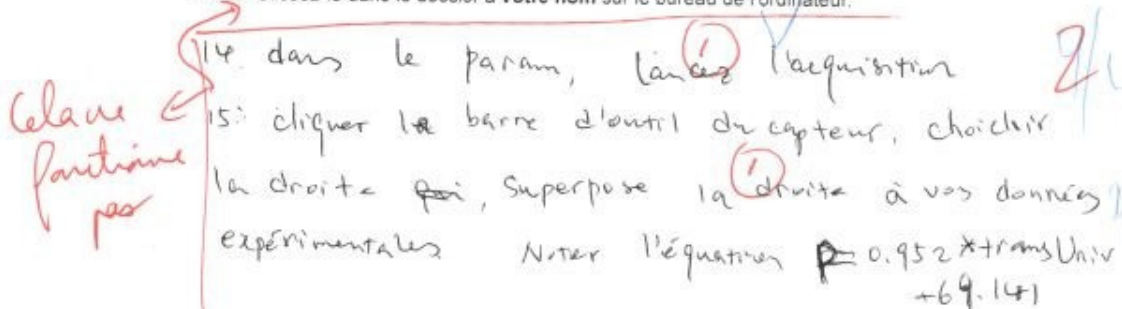 dans le dossier à votre nom sur le bureau de l'ordinateur.
14. dans le param, lancez l'acquisition
2
15: cliquer la barre d'outil du capteur, choiclsir
la droite, superpose la droite à vos données
expérimentales Noter l'équation P= 0.952 *transUniv
+69.141
Cela ne
fonctionne
pas
1
1